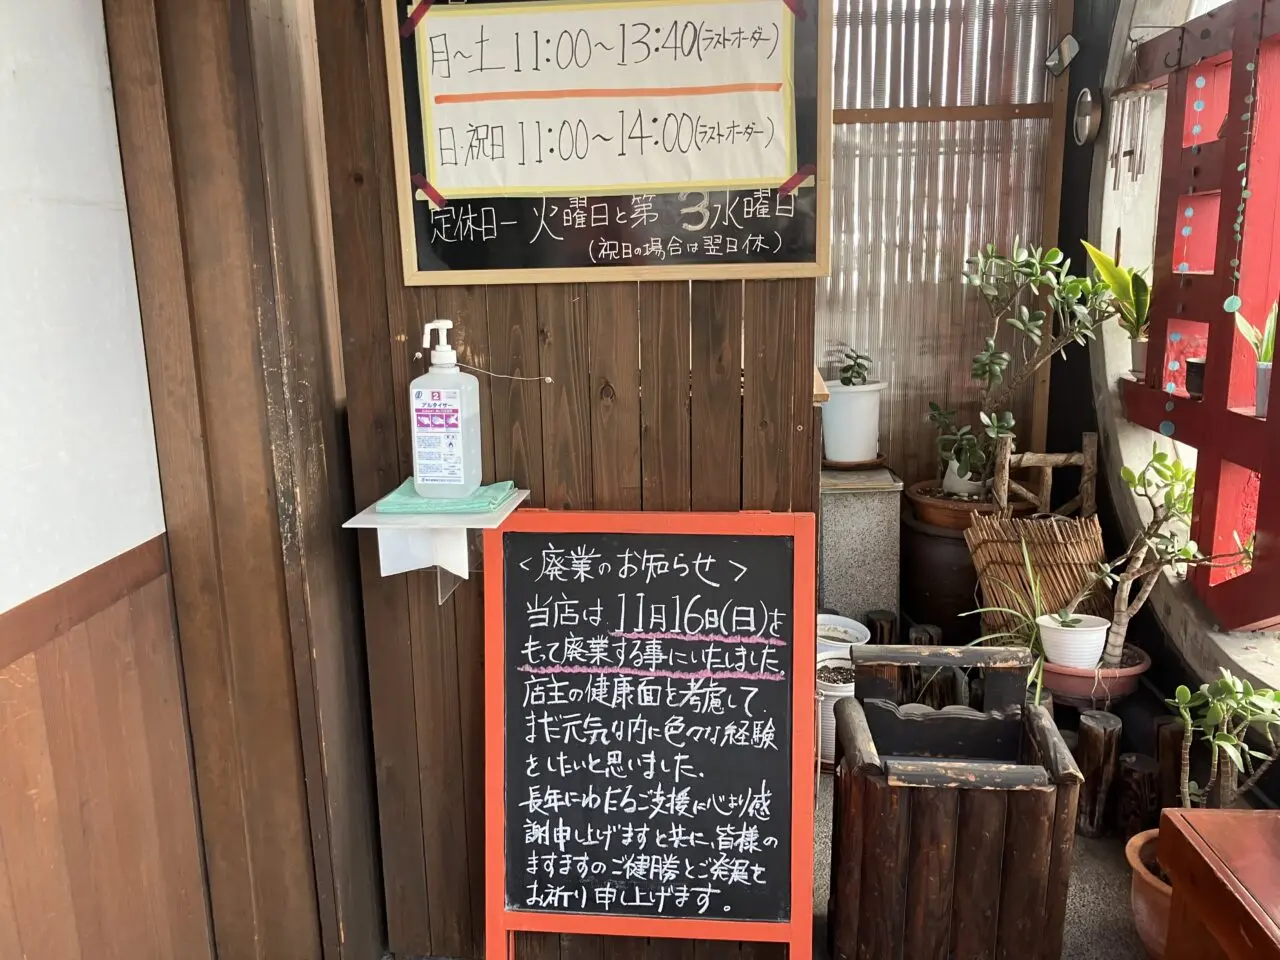 月～土 11:00～13:40(ラストオーダー)
日・祝日 11:00～14:00(ラストオーダー)
定休日ー火曜日と第3水曜日
(祝日の場合は翌日休)
2
アルタイザー
＜廃業のお知らせ＞
当店は11月16日(日)を
もって廃業する事にいたしました。
店主の健康面を考慮して
まだ元気な内に色々な経験
をしたいと思いました。
長年にわたるご支援に心より感
謝申し上げますと共に、皆様の
ますますのご健勝とご発展を
お祈り申し上げます。